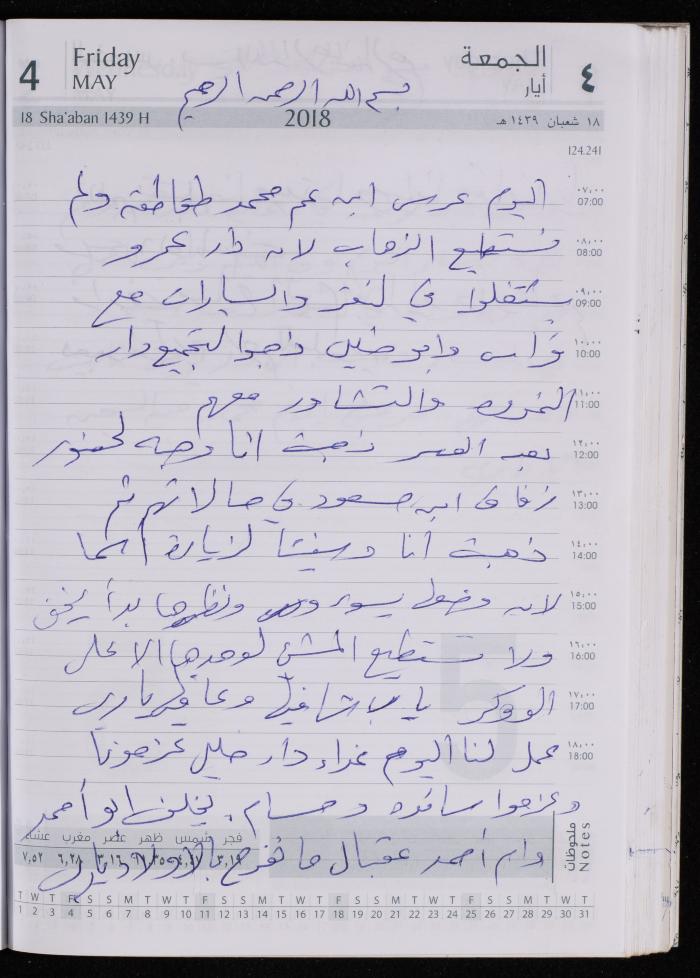 4 Friday MAY الجمعة أيار ٤
بسم الله الرحمن الرحيم
18 Sha'aban 1439 H 2018 ١٨ شعبان ١٤٣٩ هـ
124.241
اليوم عرس ابن عم محمد طقاطقة ولم ٠٧,٠٠ 07:00
نستطيع الذهاب لان دار عمرو ٠٨,٠٠ 08:00
يشتغلوا في والسيارات مع ٠٩,٠٠ 09:00
فراس وابو خليل دار ١٠,٠٠ 10:00
والتشاور معهم ١١,٠٠ 11:00
بعد العصر ذهبت انا لحضور ١٢,٠٠ 12:00
زفاف ابن مسعود في صالاتهم ثم ١٣,٠٠ 13:00
ذهبت أنا لزيارة ١٤,٠٠ 14:00
لان يسوء ونظرها بدأ يخف ١٥,٠٠ 15:00
ولا تستطيع المشي لوحدها الا على ١٦,٠٠ 16:00
الووكر يا رب يا رب ١٧,٠٠ 17:00
عمل لنا اليوم غداء دار خليل عزمونا ١٨,٠٠ 18:00
وعزموا وحسام . يخلف ابو أحمد
وام أحمد عقبال ما نفرح بالاولاد يا رب
ملاحظات Notes
فجر شمس ظهر عصر مغرب عشاء
٣,١٦ ٦,٢٨ ٧,٥٢
T W T F S S M T W T F S S M T W T F S S M T W T F S S M T W T
1 2 3 4 5 6 7 8 9 10 11 12 13 14 15 16 17 18 19 20 21 22 23 24 25 26 27 28 29 30 31